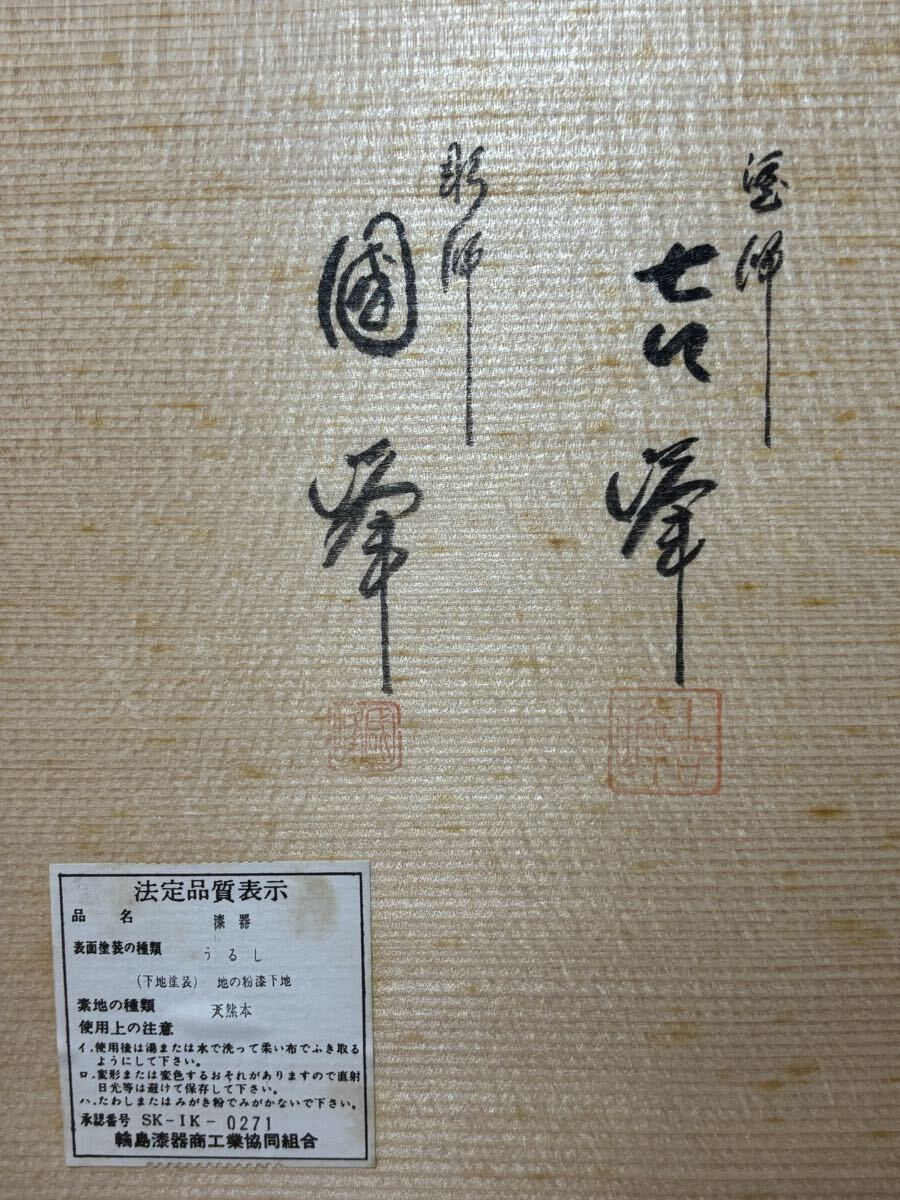 塗師
峯
彫師
國峯
法定品質表示
品名 漆器
表面塗装の種類 うるし
(下地塗装) 地の粉漆下地
素地の種類 天然木
使用上の注意
イ.使用後は湯または水で洗って柔い布でふき取る
ようにして下さい。
ロ.変形または変色するおそれがありますので直射
日光等は避けて保存して下さい。
ハ.たわしまたはみがき粉でみがかないで下さい。
承認番号 SK-IK-0271
輪島漆器商工業協同組合